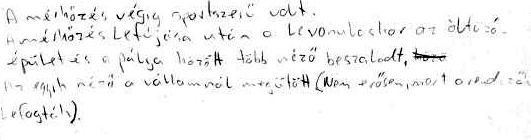 A mérkőzés végig sportszerű volt.
A mérkőzés lefújása után a levonuláskor az öltöző-
épület és a pálya között több néző beszaladt,
Az egyik néző a vállamnál megütött (Nem erősen, mert a rendezők
lefogták).